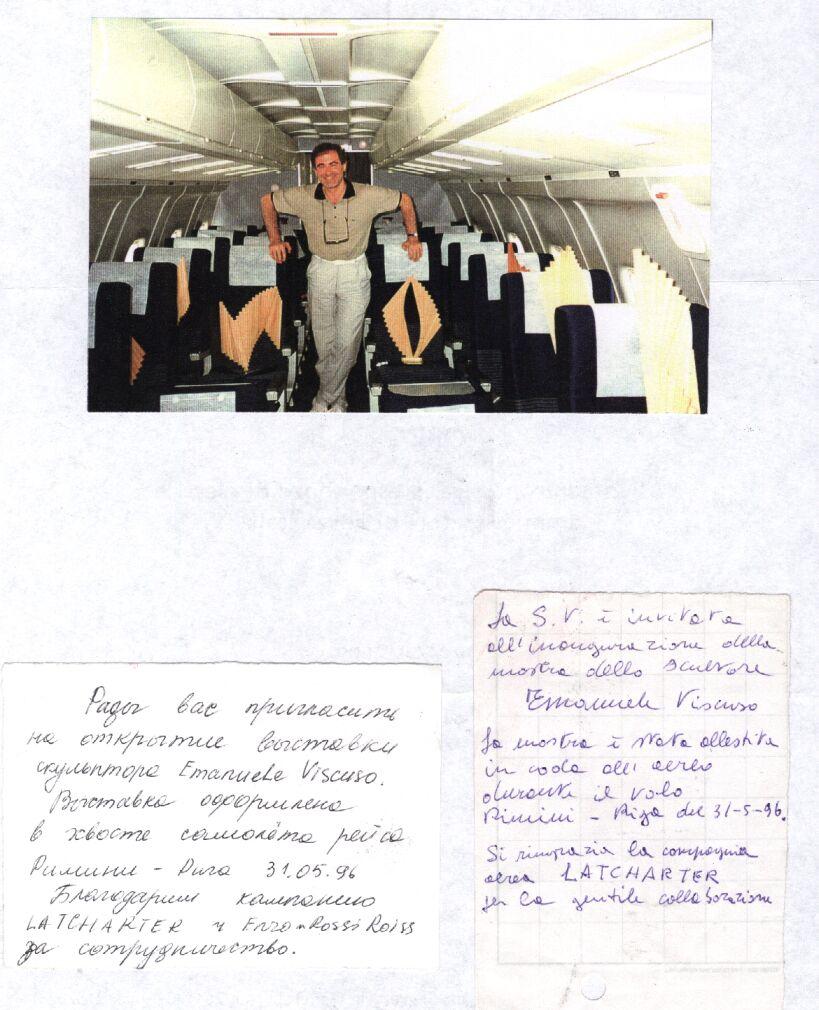 Рады вас пригласить
на открытие выставки
скульптора Emanuele Viscuso.
Выставка оформлена
в хвосте самолёта рейса
Римини - Рига 31.05.96
Благодарим кампанию
LATCHARTER и Enzo Rossi Roiss
за сотрудничество.
La S.V. è invitata
all'inaugurazione della
mostra dello scultore
Emanuele Viscuso
La mostra è stata allestita
in coda all'aereo
durante il volo
Rimini - Riga del 31-5-96.
Si ringrazia la compagnia
aerea LATCHARTER
per la gentile collaborazione